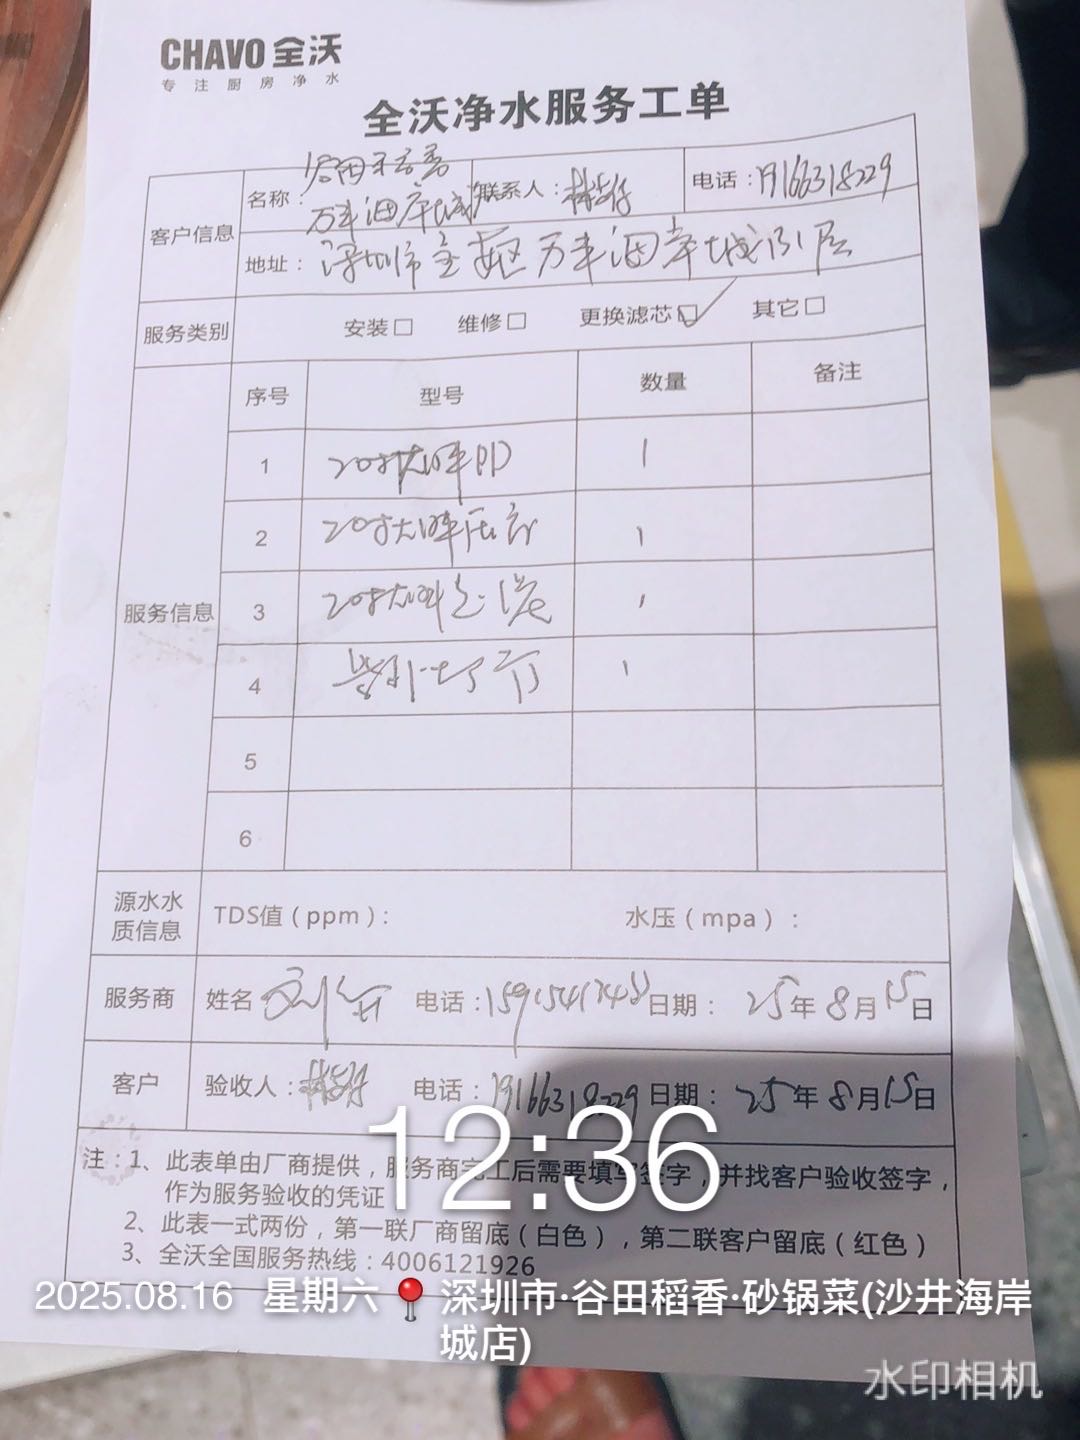 CHAVO 全沃
专注厨房净水
全沃净水服务工单
客户信息
名称：谷田稻香
万丰海岸城
联系人：
电话：19166318229
地址：深圳市宝安区万丰海岸城 层
服务类别
安装□ 维修□ 更换滤芯☑ 其它□
服务信息
序号 型号 数量 备注
1 20寸大胖PP 1
2 20寸大胖 1
3 20寸大胖 1
4 1
5
6
源水水质信息
TDS值（ppm）： 水压（mpa）：
服务商 姓名 刘 电话： 日期：25年8月15日
客户 验收人： 电话：19166318229 日期：25年8月15日
注：1、此表单由厂商提供，服务商完工后需要填写签字，并找客户验收签字，
作为服务验收的凭证
2、此表一式两份，第一联厂商留底（白色），第二联客户留底（红色）
3、全沃全国服务热线：4006121926
12:36
2025.08.16 星期六 深圳市·谷田稻香·砂锅菜(沙井海岸
城店)
水印相机